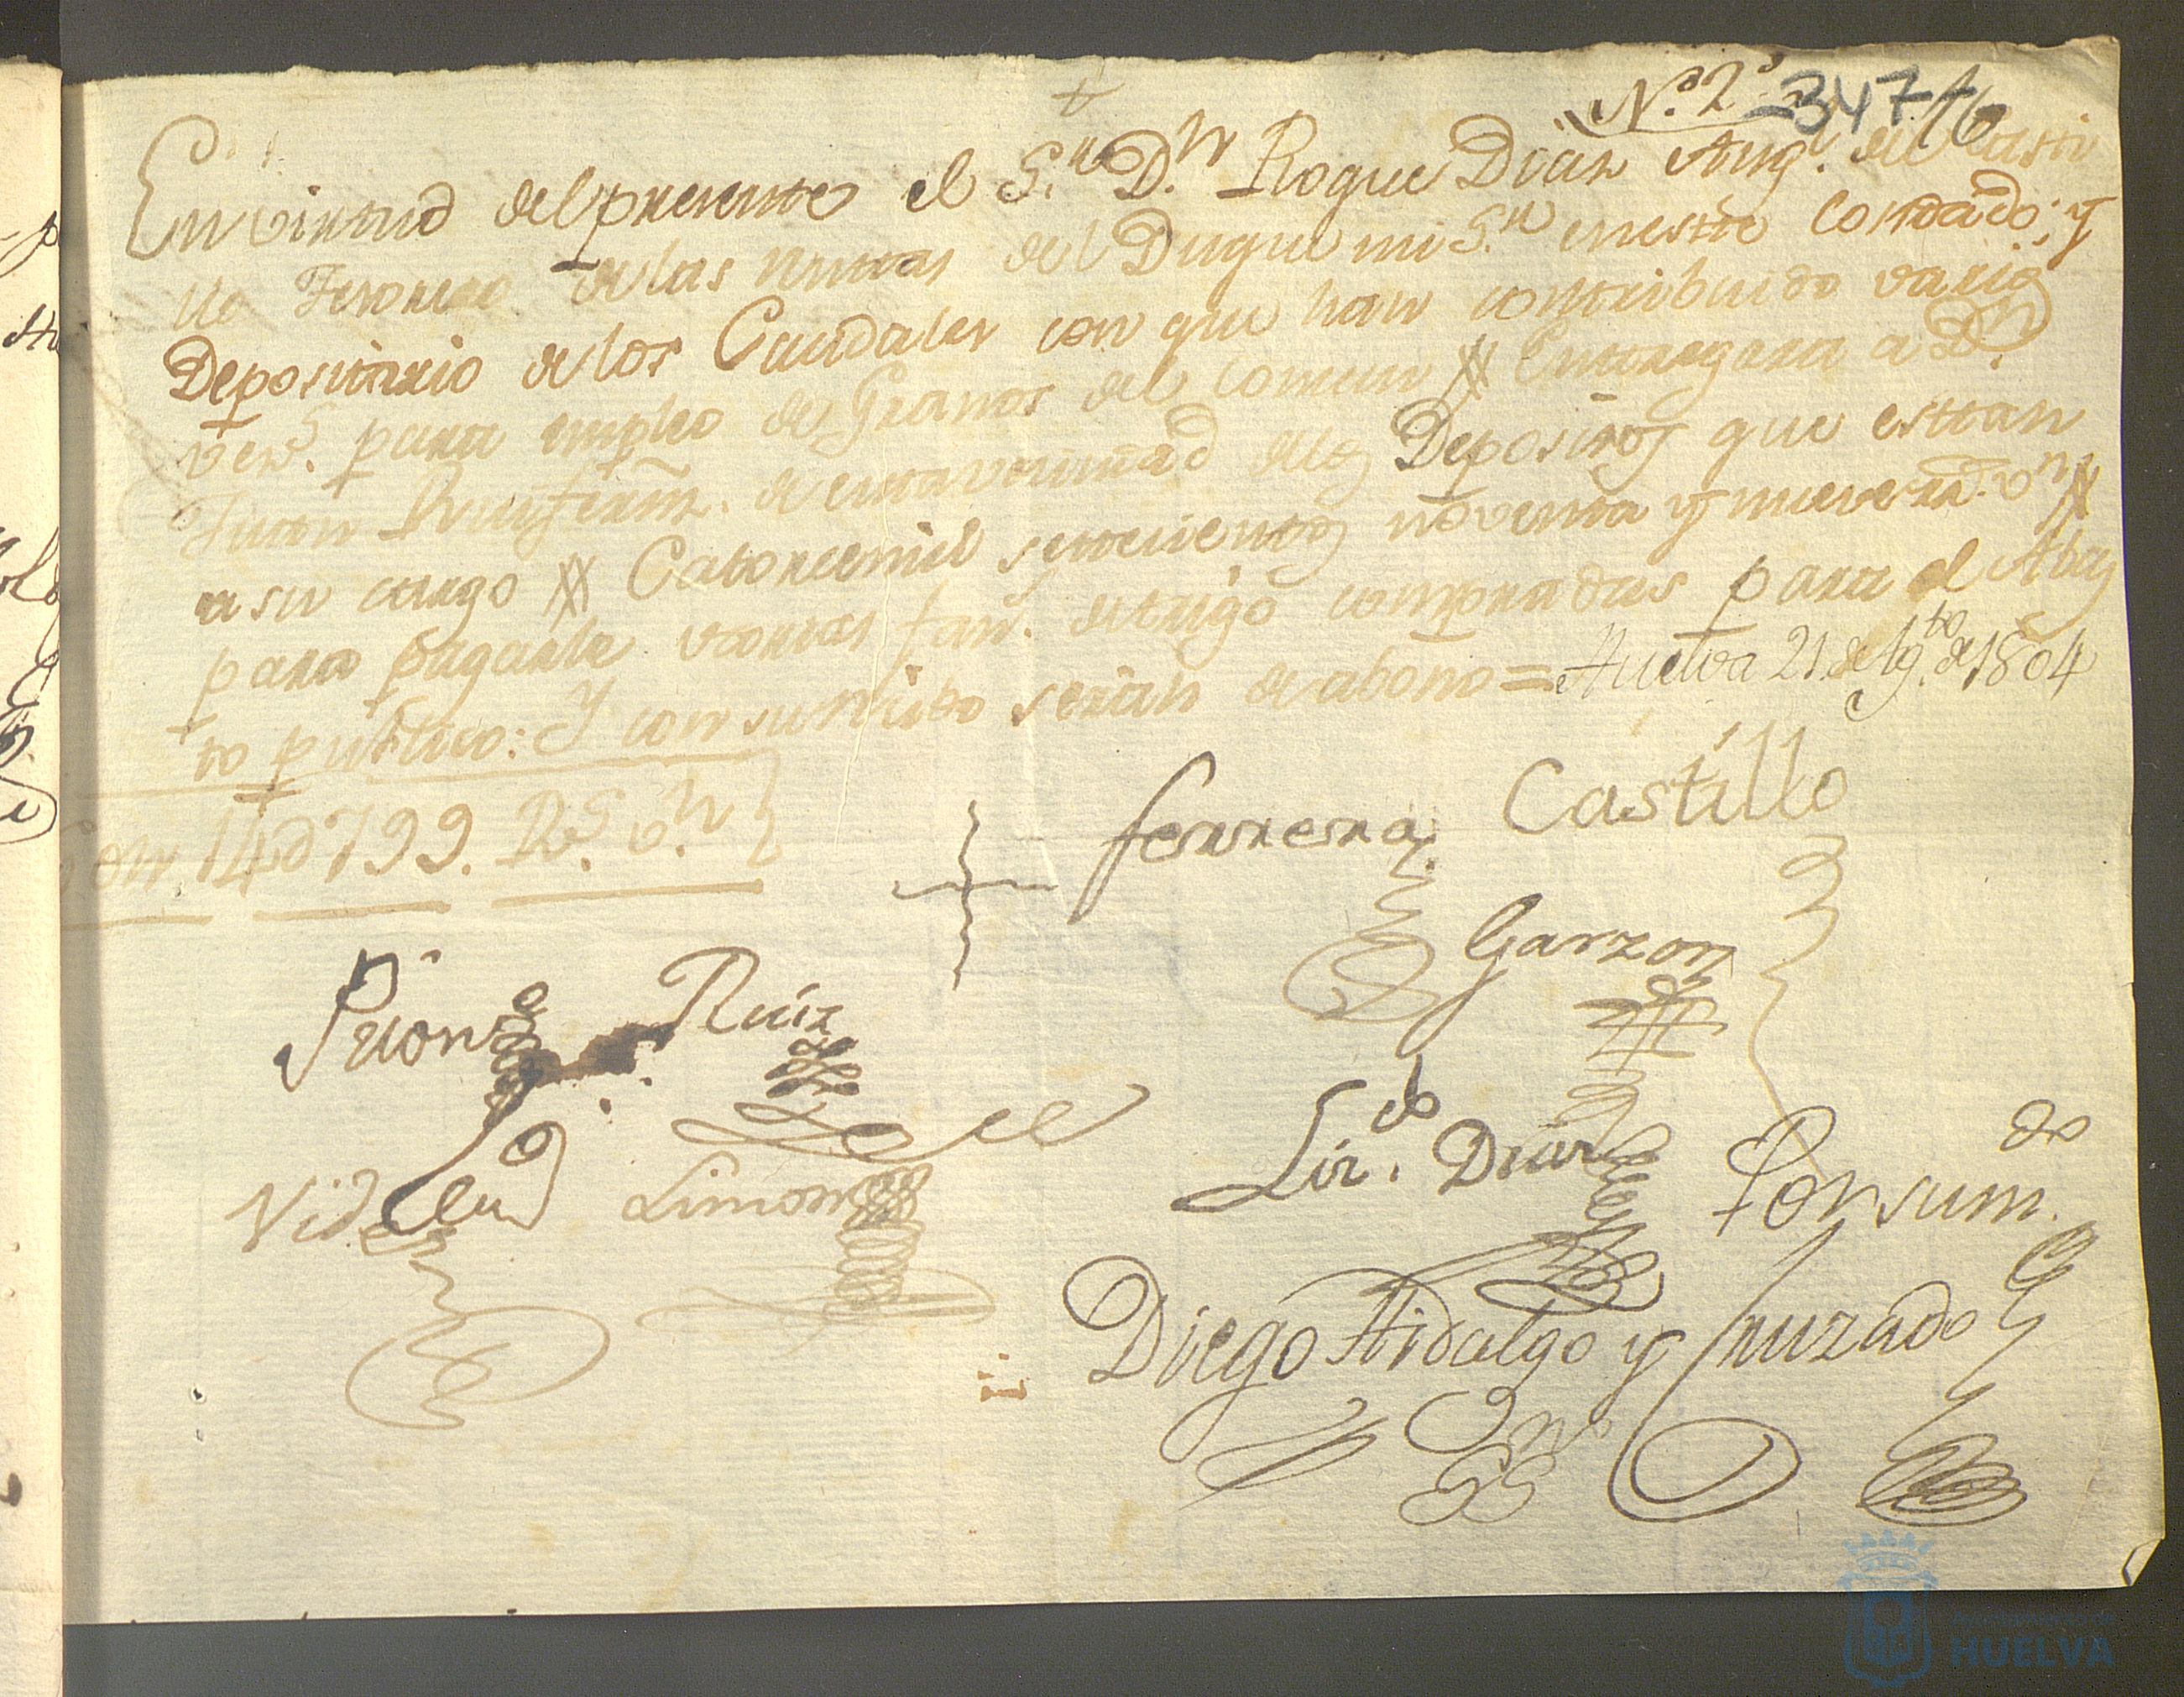 N.º 2º 347
En virtud del presente el S.or D.n Roque Diaz Ang.l del Casti
llo Tesorero de las rentas del Duque mi S.r en este Condado; y
Depositario de los Caudales con que han contribuido varios
vez.s para empleo de Granos del comun # Entregara a D.n
Juan Ruifernz. de esta vecindad de los Depositos que estan
a su cargo # Catorce mil setecientos noventa y nueve rr.s v.n #
para pagarle varias fan.s de trigo compradas para el Abas
to publico: Y con su recibo seran de abono = Huelva 21 de Ag.to de 1804
Son 14d799. R.s v.n
Ferrera Castillo
Garzon
Ruiz
Lic.do Diaz
Limon
Por su m.do
Diego Hidalgo y Hurzado
HUELVA